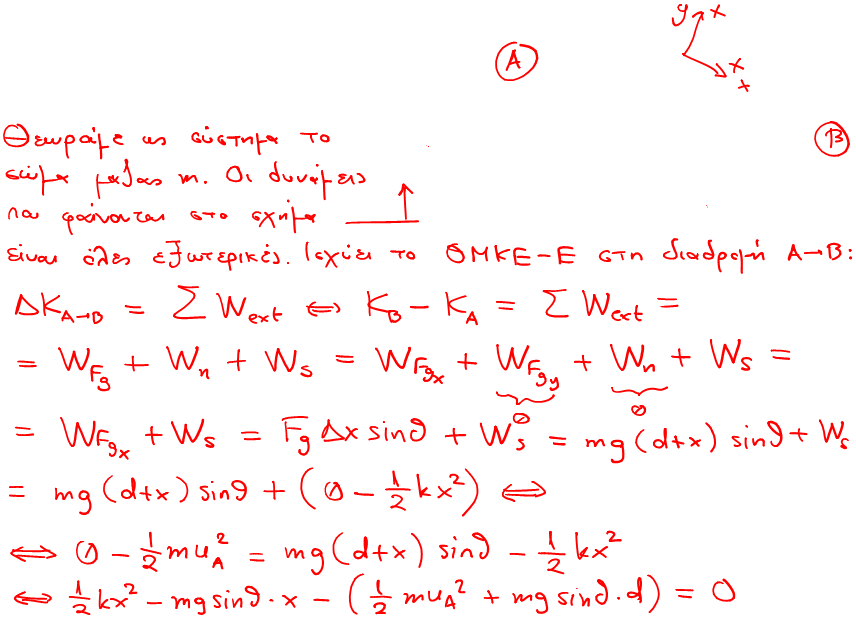 y x
Α
x
x
Β
Θεωράμε ως σύστημα το
σώμα μάζας m. Οι δυνάμεις
που φαίνονται στο σχήμα
είναι όλες εξωτερικές. Ισχύει το ΘΜΚΕ-Ε στη διαδρομή Α→Β:
ΔK_{A→B} = Σ W_{ext} ⇔ K_B - K_A = Σ W_{ext} =
= W_{F_g} + W_n + W_s = W_{F_{gx}} + W_{F_{gy}} + W_n + W_s =
0 0
= W_{F_{gx}} + W_s = F_g Δx sinθ + W_s = mg(d+x) sinθ + W_s
= mg(d+x) sinθ + (0 - \frac{1}{2}kx^2) ⇔
⇔ 0 - \frac{1}{2}mu_A^2 = mg(d+x) sinθ - \frac{1}{2}kx^2
⇔ \frac{1}{2}kx^2 - mg sinθ·x - (\frac{1}{2}mu_A^2 + mg sinθ·d) = 0